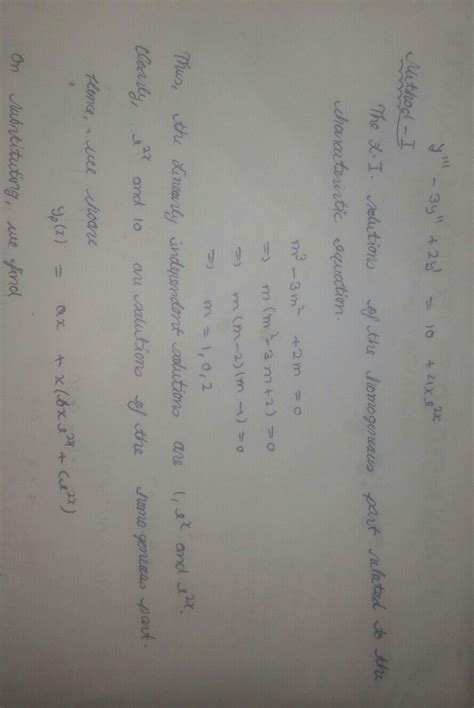 y''' - 3y'' + 2y' = 10 + 4xe^{2x}
Method-I
The L.I. solutions of the homogeneous part related to the
characteristic equation.
m³ - 3m² + 2m = 0
⇒ m(m²-3m+2) = 0
⇒ m(m-2)(m-1) = 0
⇒ m = 1, 0, 2
Thus, the linearly independent solutions are 1, e^x and e^{2x}.
Clearly, e^{2x} and 10 are solutions of the homogeneous part.
Hence, we choose
y_p(x) = ax + x(bxe^{2x} + ce^{2x})
On substituting, we find